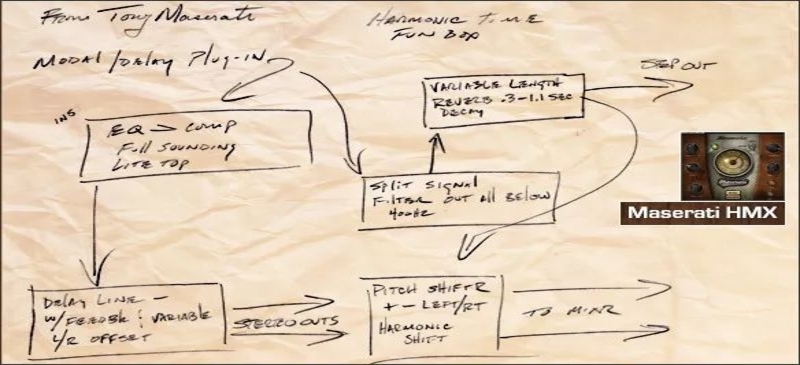 From Tony Maserati
Harmonic Time
Fun Box
Modal/Delay Plug-in
INS
EQ → Comp
Full Sounding
Lite Top
Variable Length
Reverb .3-1.1 sec
Decay
Sep out
Split Signal
Filter out all below
400Hz
Maserati HMX
Delay Line -
w/Feedbk & Variable
L/R offset
Stereo outs
Pitch Shiftr
+ - Left/Rt
Harmonic
Shift
To Minr